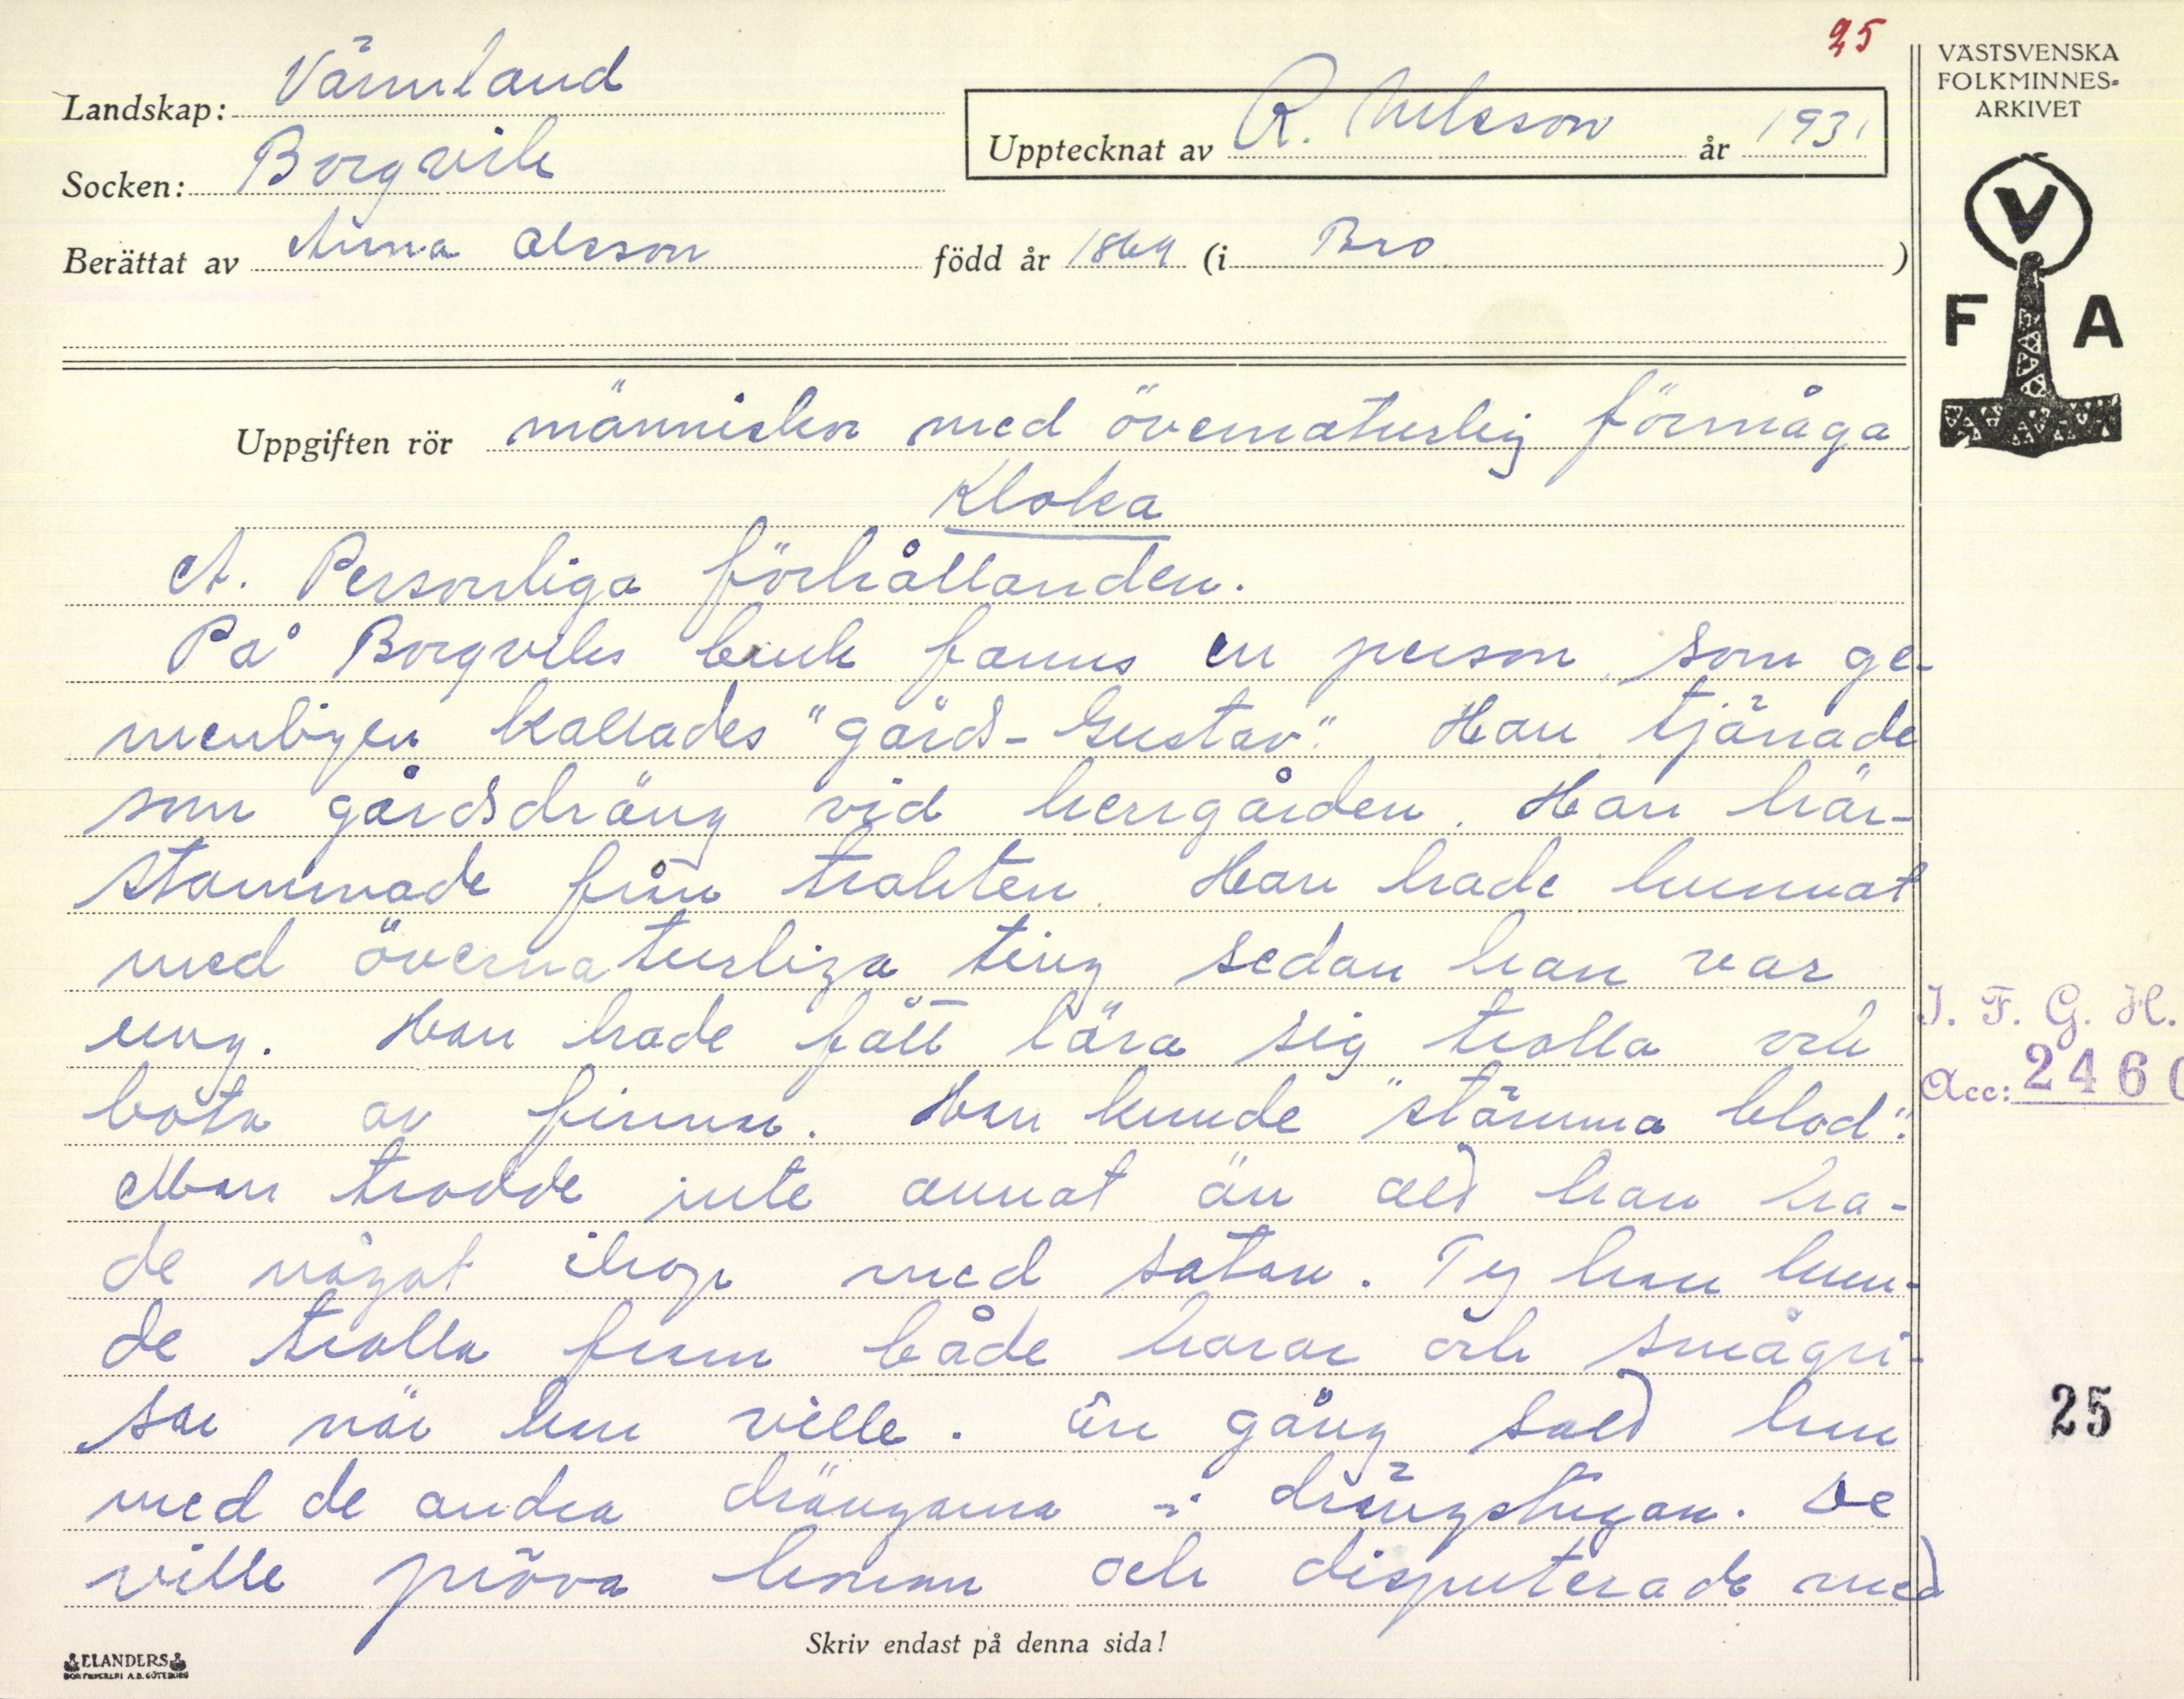 25
VÄSTSVENSKA
FOLKMINNES-
ARKIVET
Landskap: Värmland
Upptecknat av R. Nilsson år 1931
Socken: Borgvik
Berättat av Anna Olsson född år 1864 (i Bro )
V
F A
Uppgiften rör människor med övernaturlig förmåga
Kloka
A. Personliga förhållanden.
På Borgviks bruk fanns en person, som ge-
menligen kallades "gårds-Gustav". Han tjänade
som gårdsdräng vid herrgården. Han här-
stammade från trakten. Han hade kunnat
med övernaturliga ting sedan han var
ung. Han hade fått lära sig trolla och
bota av finnar. Han kunde "stämma blod".
Man trodde inte annat än att han ha-
de något ihop med satan. Ty han kun-
de trolla fram både harar och smågri-
sar när han ville. En gång satt han
med de andra drängarna i drängstugan. De
ville pröva honom och disputerade med
I. F. G. H.
Acc: 2460
25
Skriv endast på denna sida!
ELANDERS
BOKTRYCKERI A.B. GÖTEBORG